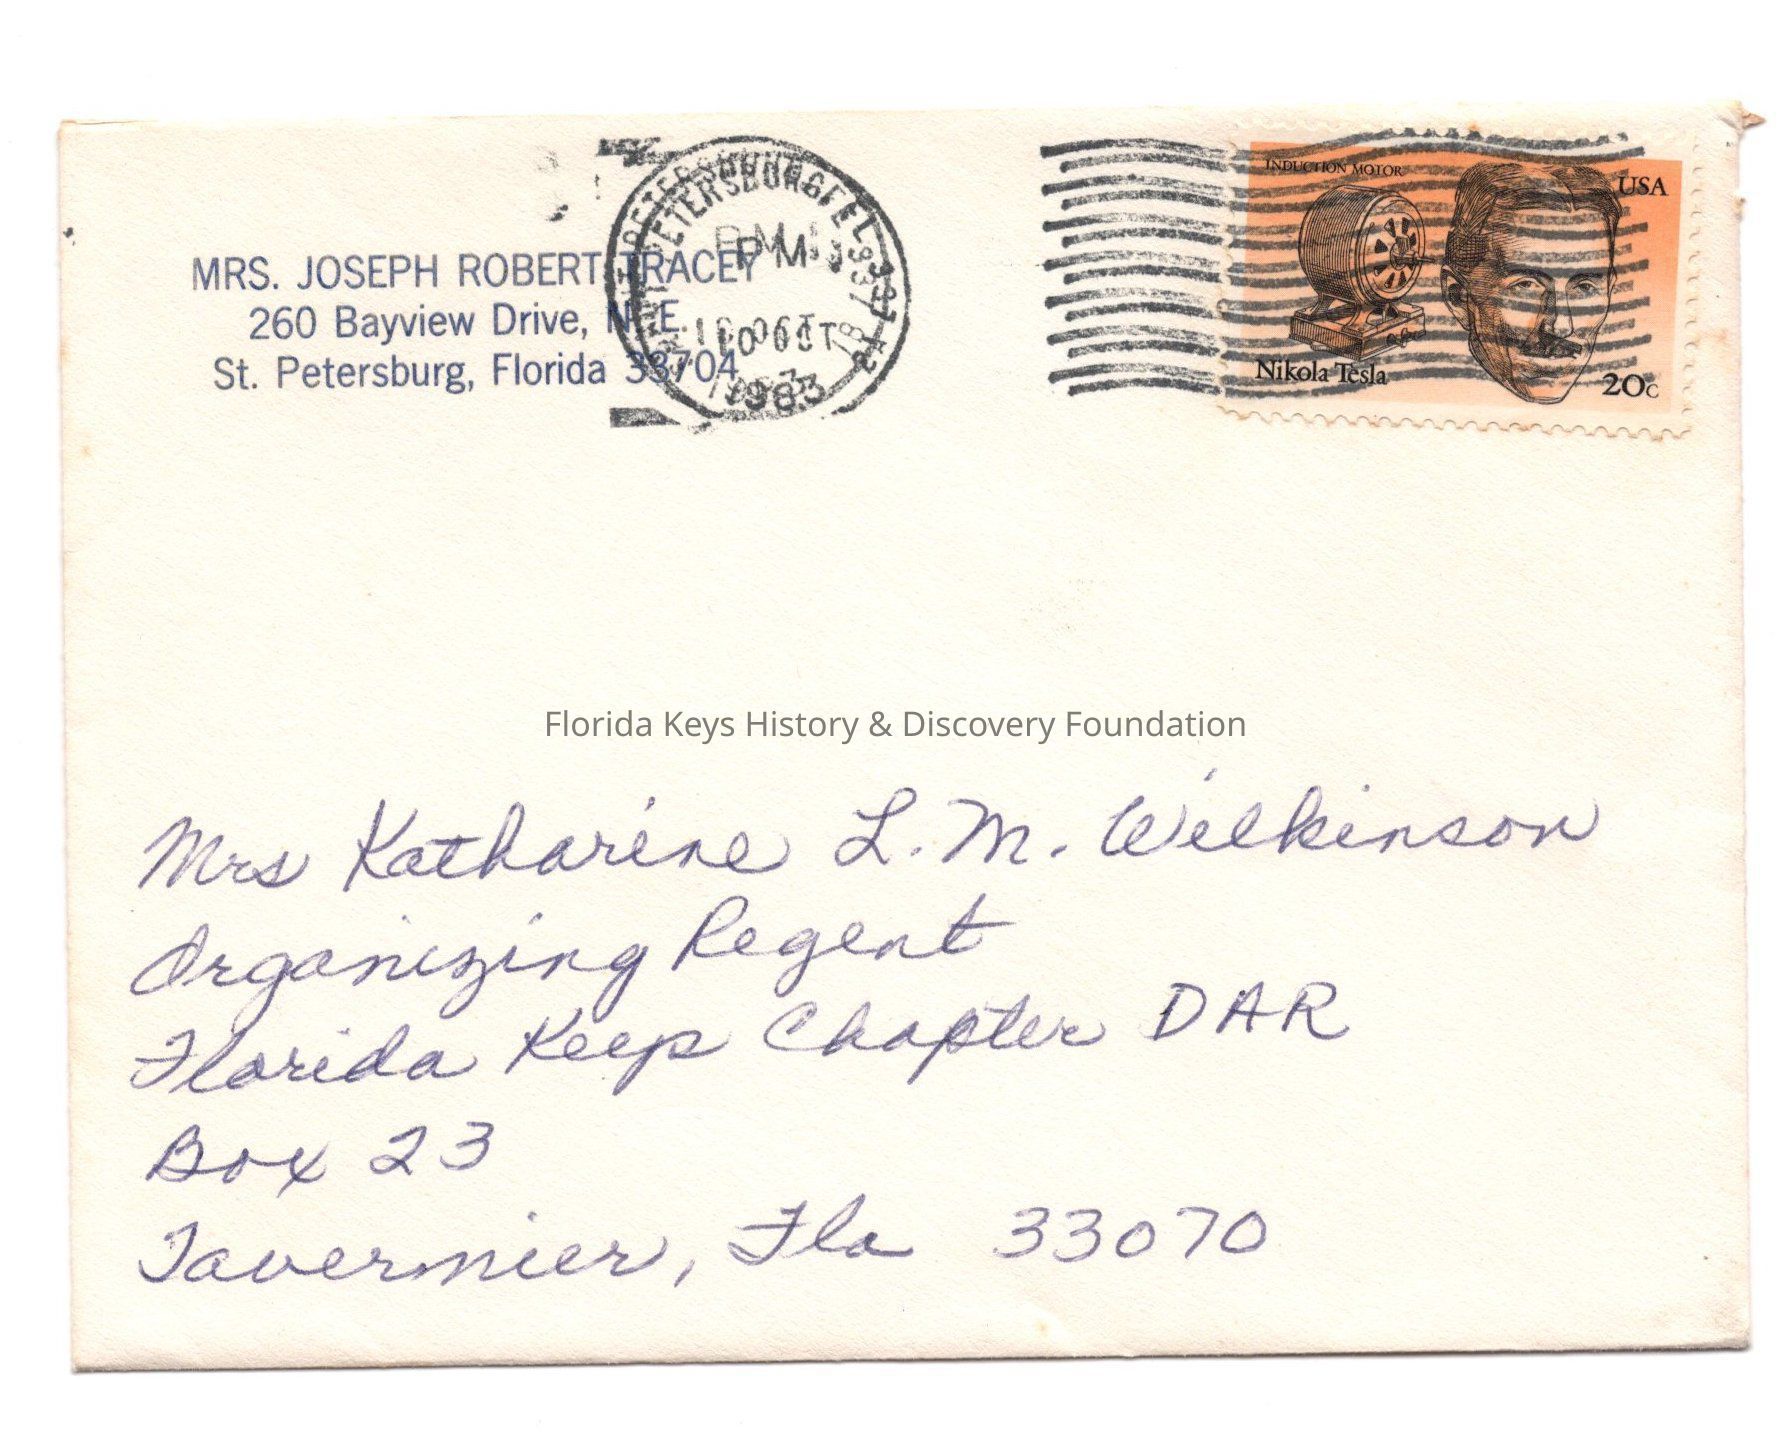 MRS. JOSEPH ROBERT TRACEY
260 Bayview Drive, N. E.
St. Petersburg, Florida 33704
PETERSBURG FL
PM
10 OCT
1983
INDUCTION MOTOR
USA
Nikola Tesla
20c
Florida Keys History & Discovery Foundation
Mrs Katharine L. M. Wilkinson
Organizing Regent
Florida Keys Chapter DAR
Box 23
Tavernier, Fla 33070